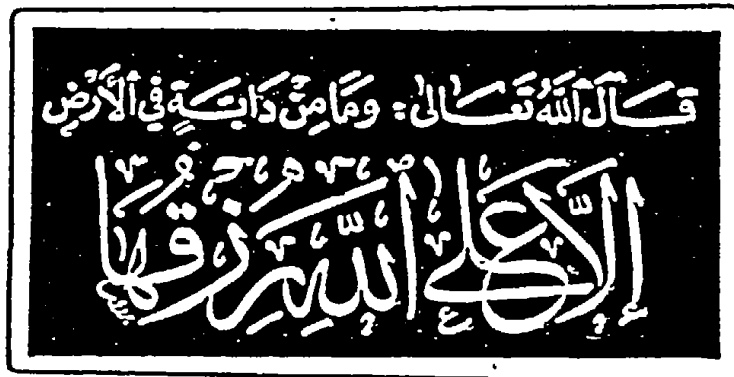 قَالَ اللَّهُ تَعَالَىٰ: وَمَا مِنْ دَابَّةٍ فِي الْأَرْضِ
إِلَّا عَلَى اللَّهِ رِزْقُهَا